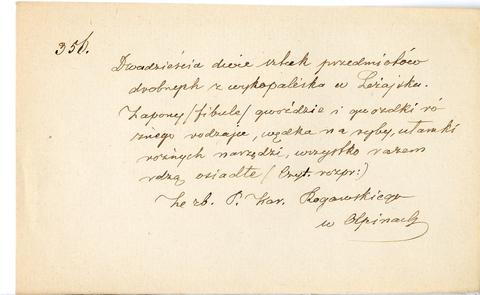 356.
Dwadzieścia dwie sztuk przedmiotów
drobnych z wykopaliska w Leżajsku.
Zapony /fibule/ gwoździe i gwozdki ró-
żnego rodzaju, wędka na ryby, ułamki
różnych narzędzi, wszystko razem
rdzą osiadłe / Czyt. rozpr:)
Ze zb. P. Kar. Rogawskiego
w Ołpinach